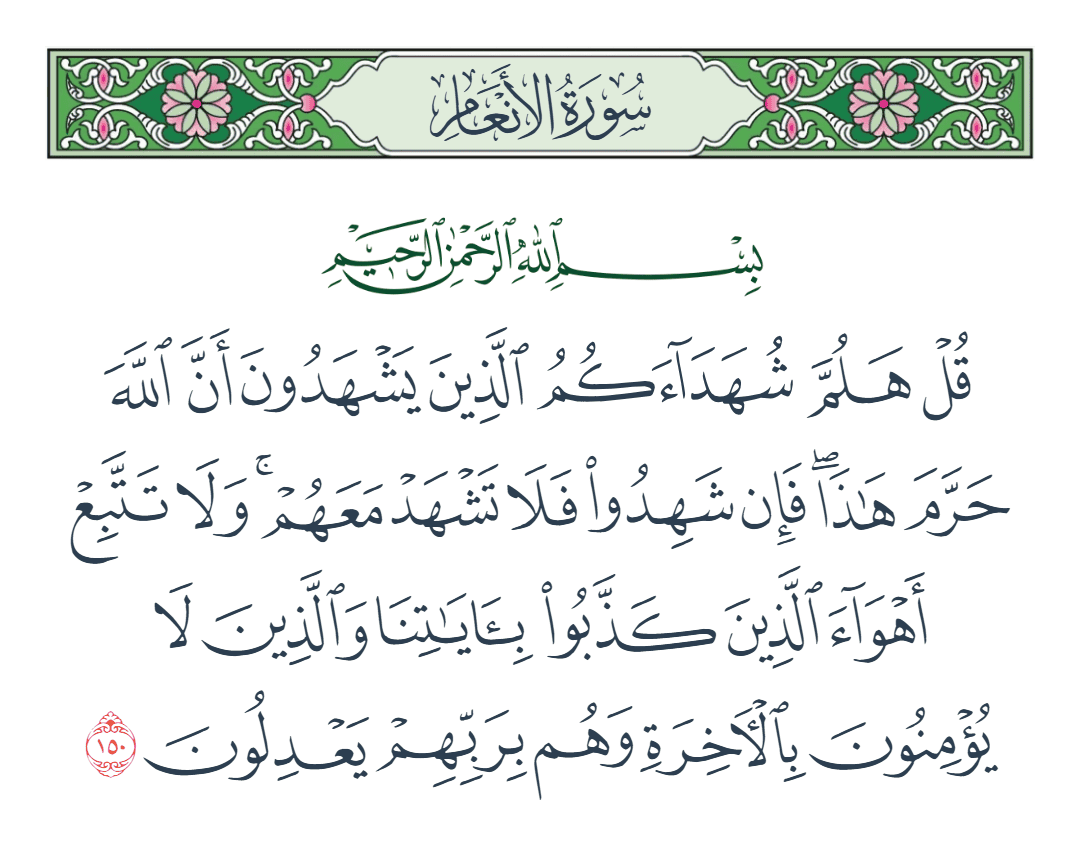 سُورَةُ الأَنْعَامِ
بِسْمِ ٱللَّهِ ٱلرَّحْمَٰنِ ٱلرَّحِيمِ
قُلْ هَلُمَّ شُهَدَآءَكُمُ ٱلَّذِينَ يَشْهَدُونَ أَنَّ ٱللَّهَ
حَرَّمَ هَٰذَاۖ فَإِن شَهِدُوا۟ فَلَا تَشْهَدْ مَعَهُمْۚ وَلَا تَتَّبِعْ
أَهْوَآءَ ٱلَّذِينَ كَذَّبُوا۟ بِـَٔايَٰتِنَا وَٱلَّذِينَ لَا
يُؤْمِنُونَ بِٱلْأَخِرَةِ وَهُم بِرَبِّهِمْ يَعْدِلُونَ ١٥٠